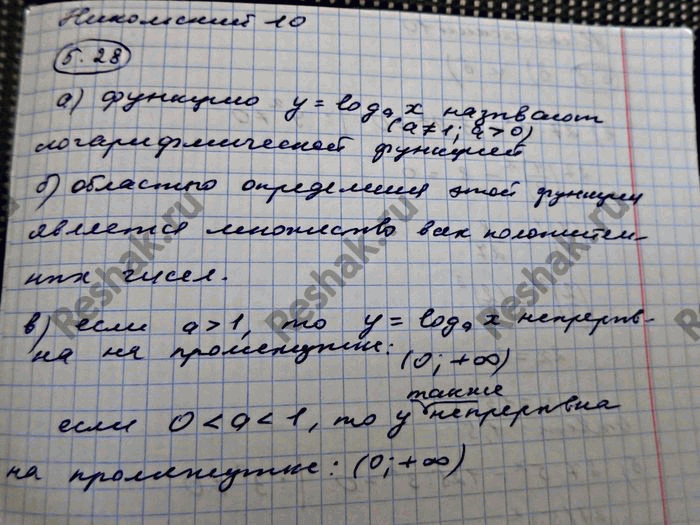 Никольский 10
5.28
а) функцию y = logₐ x называют
(a≠1; a>0)
логарифмической функцией
б) областью определения этой функции
является множество всех положитель-
ных чисел.
в) если a>1, то y = logₐ x непрерыв-
на на промежутке: (0; +∞)
также
если 0<a<1, то y непрерывна
на промежутке: (0; +∞)
Reshak.ru
Reshak.ru
Reshak.ru